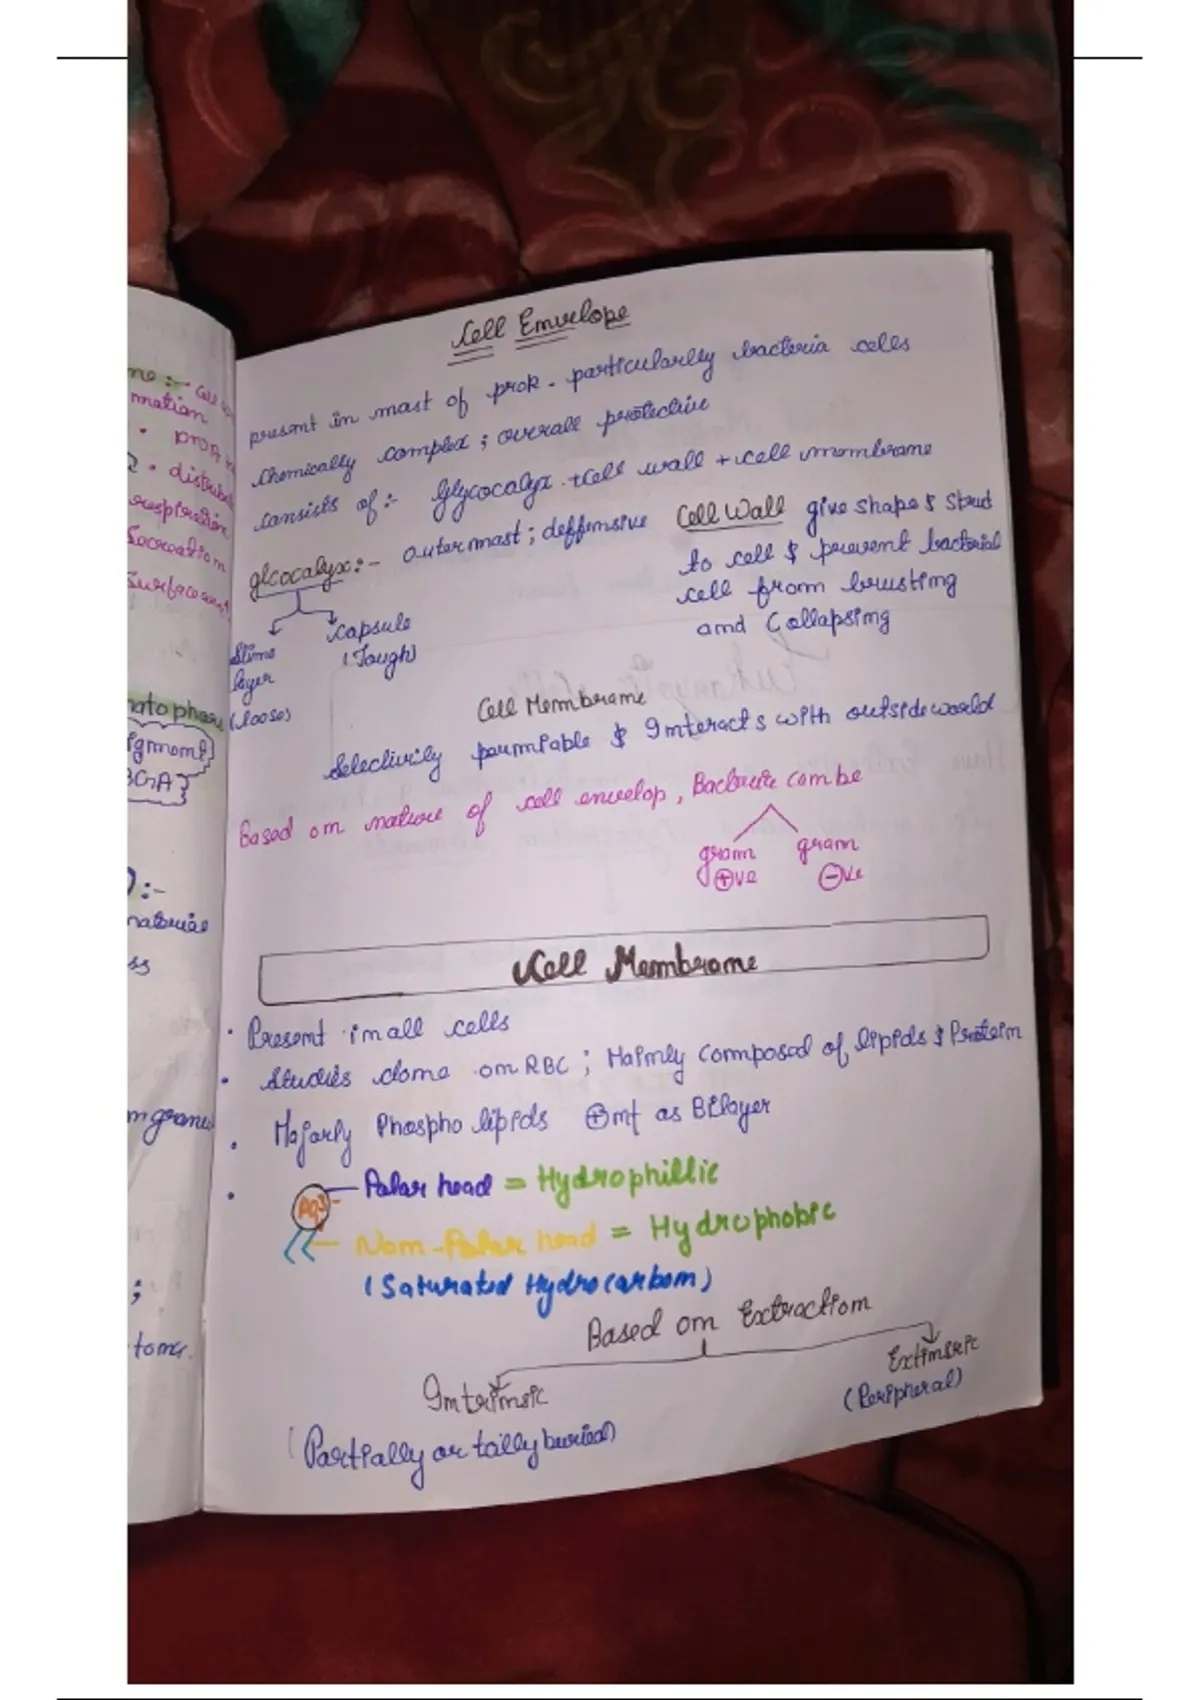 Cell Envelope
present in most of prok. particularlly bacteria cells
chemically complex ; overall protective
consists of :- Glycocalyx + cell wall + cell membrane
glcocalyx :- outermost ; deffensive
Slime layer (loose)
capsule (Tough)
Cell Wall give shape & struct
to cell & prevent bacterial
cell from brusting
and Collapsing
Cell Membrane
Selectivily permiable & Interacts with outside world
Based on nature of cell envelop, Bacteria can be
gram +ve
gram -ve
Cell Membrane
• Present in all cells
• Studies done on RBC ; Mainly composed of lipids & Protein
• Majorly Phospho lipids ⊕nt as Bilayer
• Polar head = Hydrophillic
Non-Polar head = Hydrophobic
(Saturated Hydrocarbon)
Based on Extraction
Intrinsic
(Partially or tally buried)
Extinsric
(Peripheral)
mation
respiration
Secreation